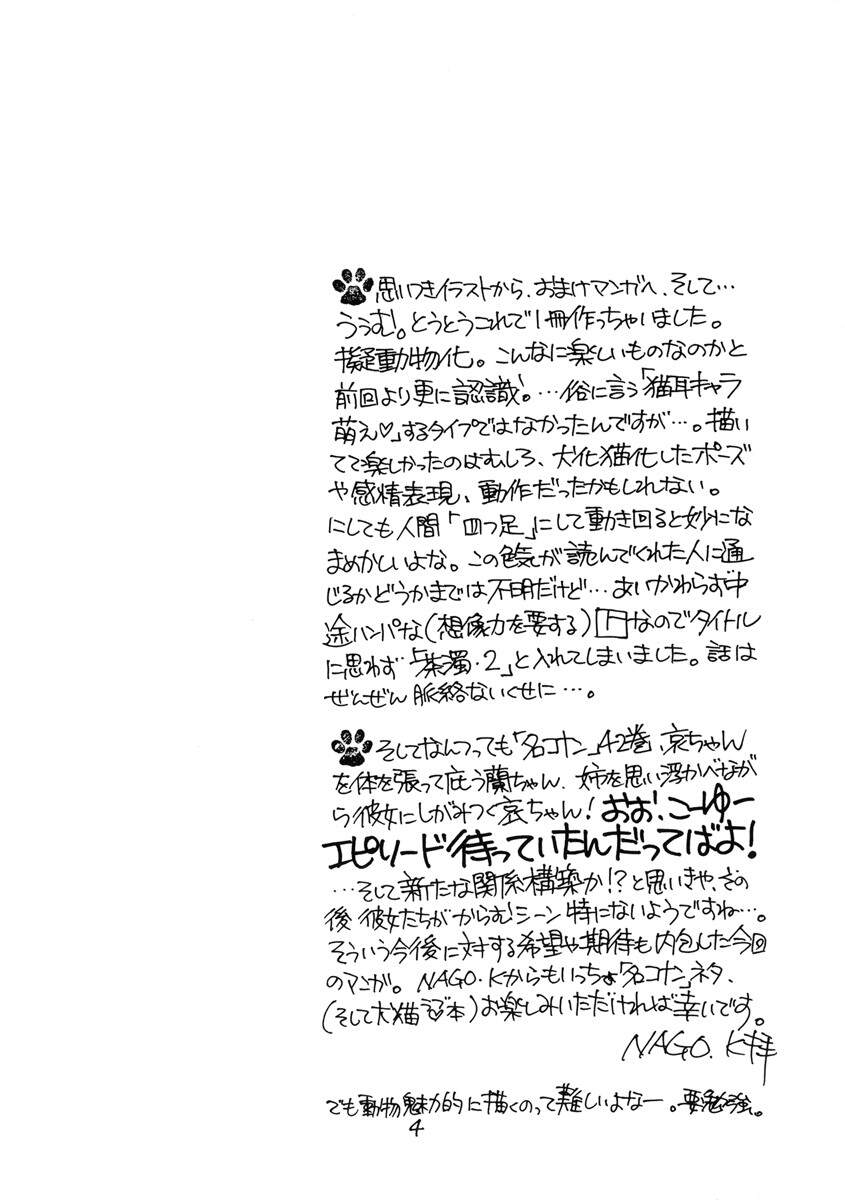 思いつきイラストから、おまけマンガへ、そして…
ううむ!。とうとうこれで1冊作っちゃいました。
擬動物化。こんなに楽しいものなのかと
前回より更に認識!。…俗に言う「猫耳キャラ
萌え♡」するタイプではなかったんですが…。描い
てて楽しかったのはむしろ、犬化猫化したポーズ
や感情表現、動作だったかもしれない。
にしても人間「四つ足」にして動き回ると妙にな
まめかしいよな。この色気が読んでくれた人に通
じるかどうかまでは不明だけど…あいかわらず中
途ハンパな(想像力を要する)Hなのでタイトル
に思わず「茶濁・2」と入れてしまいました。話は
ぜんぜん脈絡ないくせに…。
そしてなんつっても「名コナン」42巻、哀ちゃん
を体を張って庇う蘭ちゃん、姉を思い浮かべなが
ら彼女にしがみつく哀ちゃん!おお!、こーゆー
エピソード待っていたんだってばよ!
…そして新たな関係構築か!?と思いきや、その
後彼女たちがからむシーン特にないようですね…。
そういう今後に対する希望や期待も内包した今回
のマンガ。NAGO.Kからもいっちょ「名コナン」ネタ、
(そして犬猫ラブ本)お楽しみいただければ幸いです。
NAGO.K拝
でも動物魅力的に描くのって難しいよなー。要勉強。
4